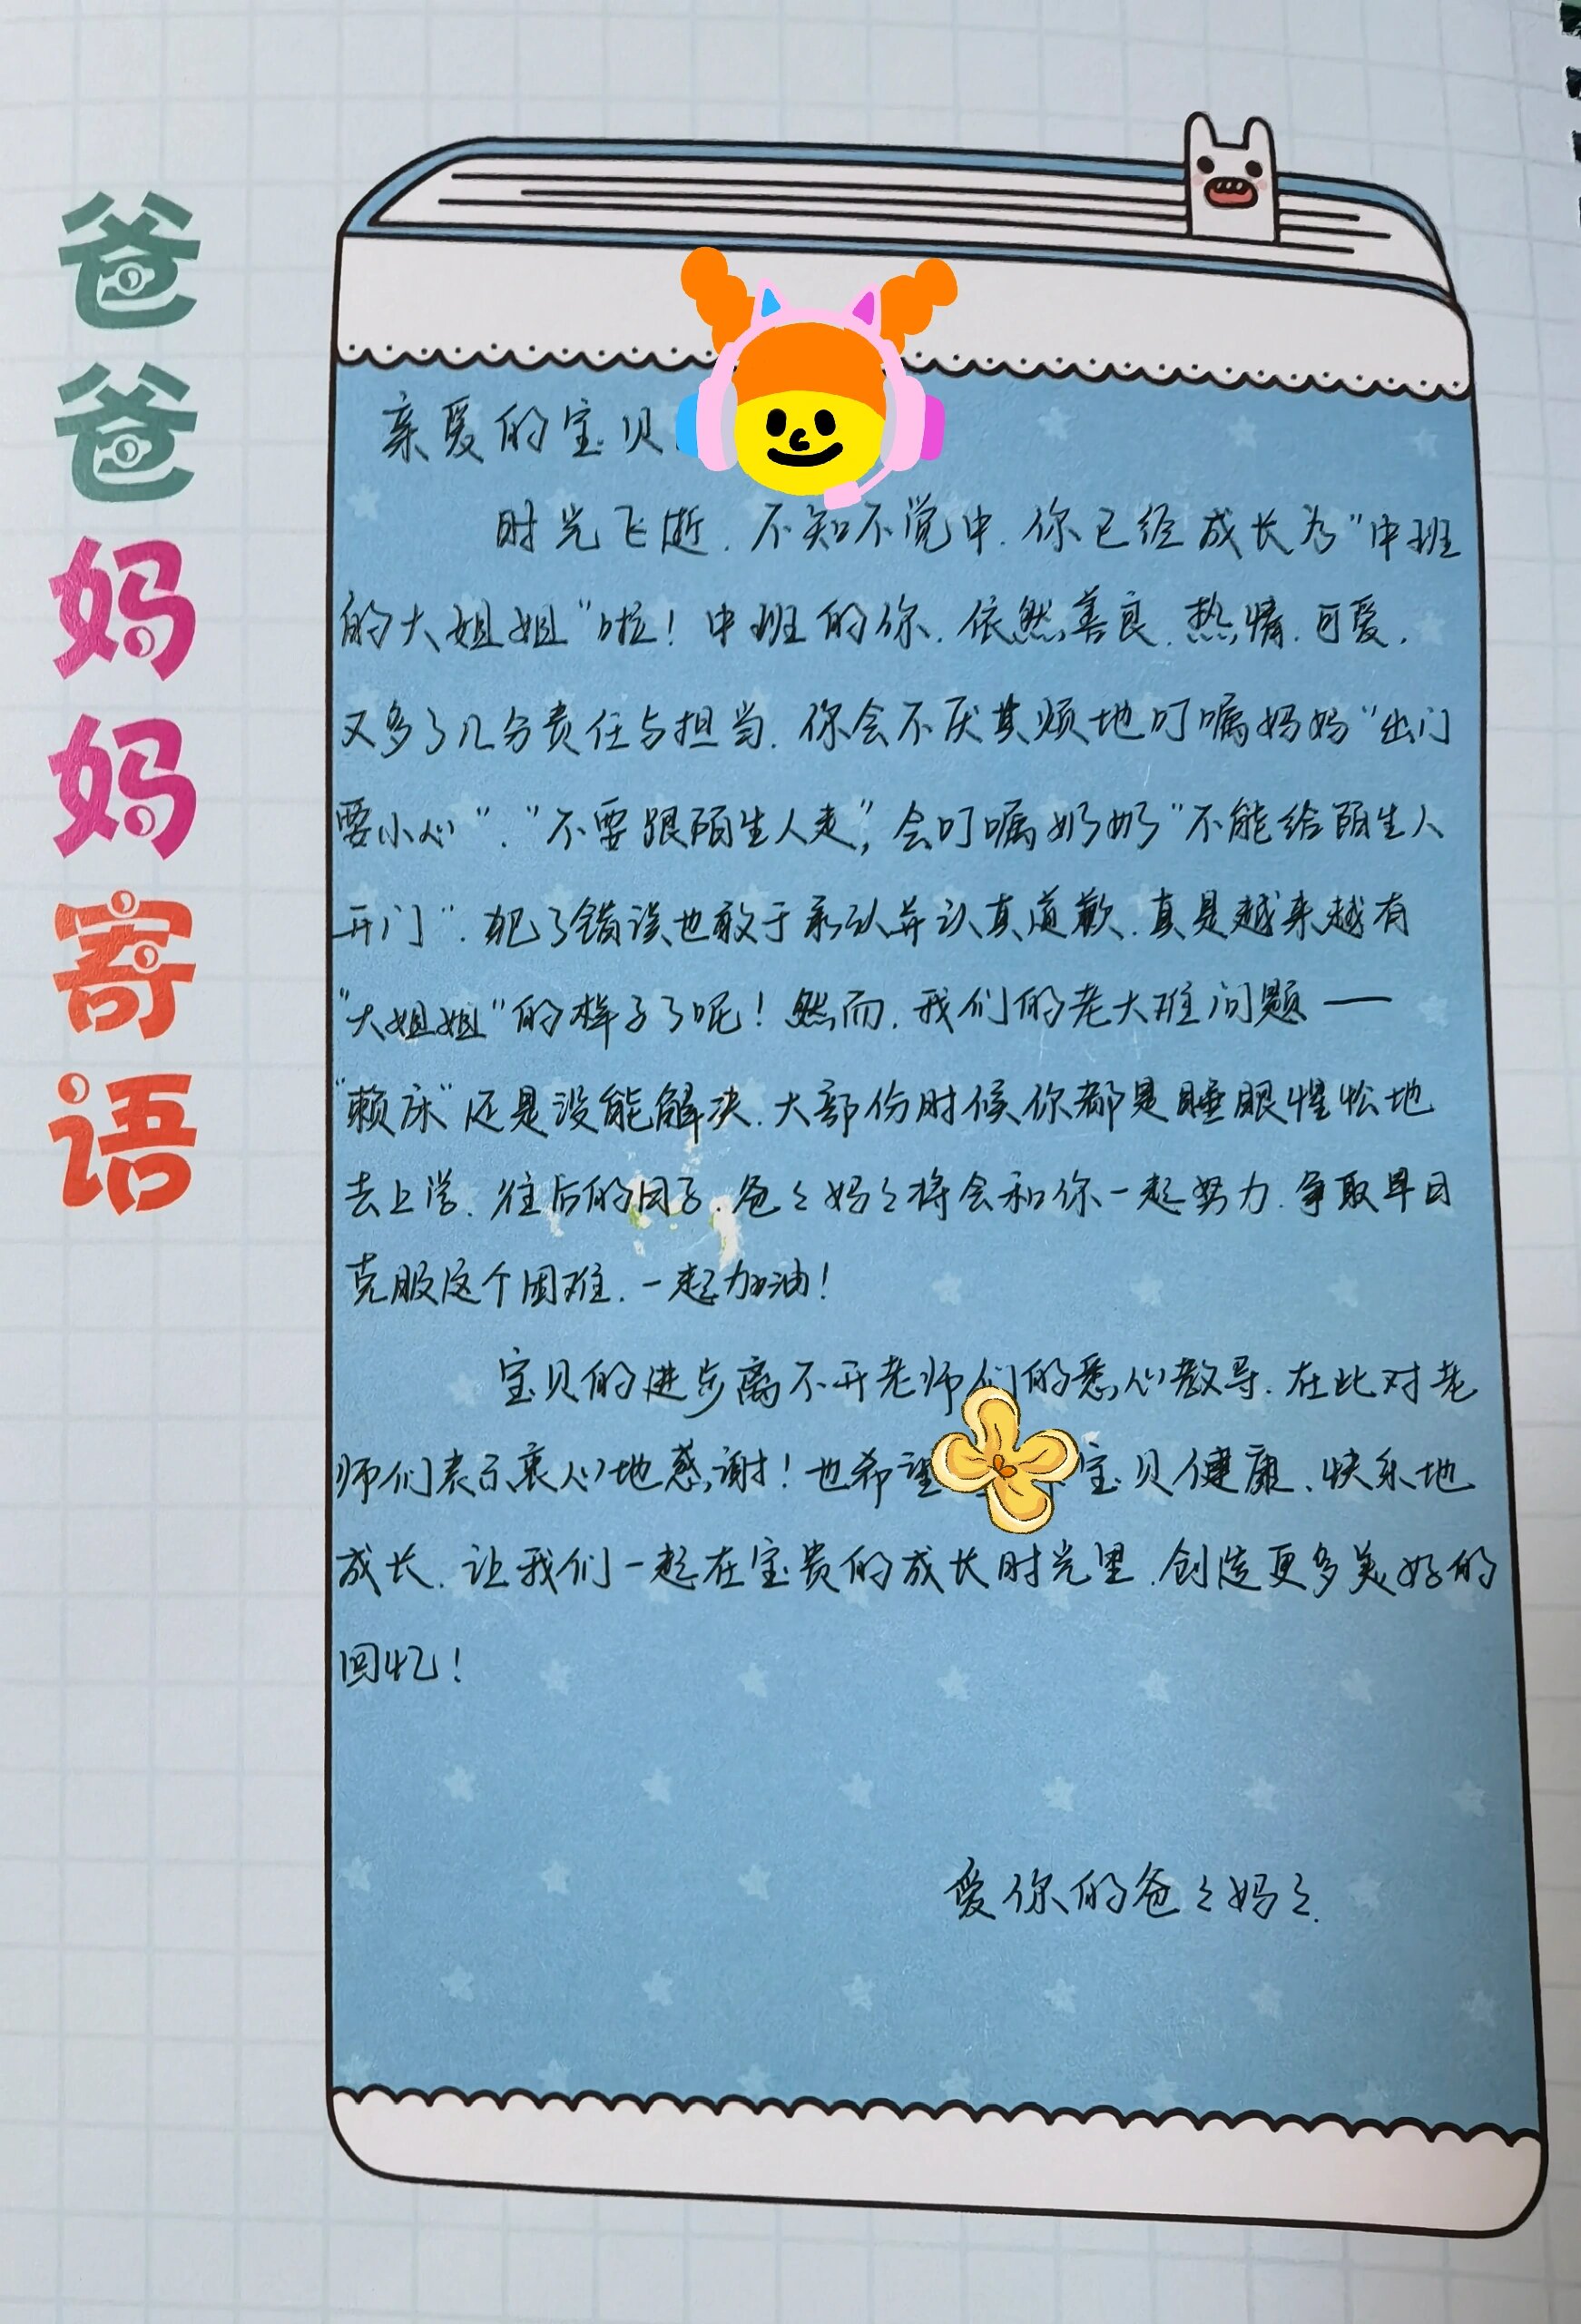 爸爸妈妈寄语
亲爱的宝贝
时光飞逝，不知不觉中，你已经成长为"中班
的大姐姐"啦！中班的你，依然善良、热情、可爱，
又多了几分责任与担当，你会不厌其烦地叮嘱妈妈"出门
要小心"、"不要跟陌生人走"，会叮嘱奶奶"不能给陌生人
开门"，犯了错误也敢于承认并认真道歉，真是越来越有
"大姐姐"的样子了呢！然而，我们的老大难问题——
"赖床"还是没能解决，大部份时候你都是睡眼惺忪地
去上学，往后的日子，爸々妈々将会和你一起努力，争取早日
克服这个困难，一起加油！
宝贝的进步离不开老师们的悉心教导，在此对老
师们表示衷心地感谢！也希望宝贝健康、快乐地
成长，让我们一起在宝贵的成长时光里，创造更多美好的
回忆！
爱你的爸々妈々.